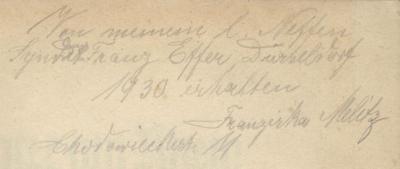 Von meinem l. Neffen
Syndik. Franz Effer, Düsseldorf
1930 erhalten
Franziska Melitz
Chodowieckistr. 11